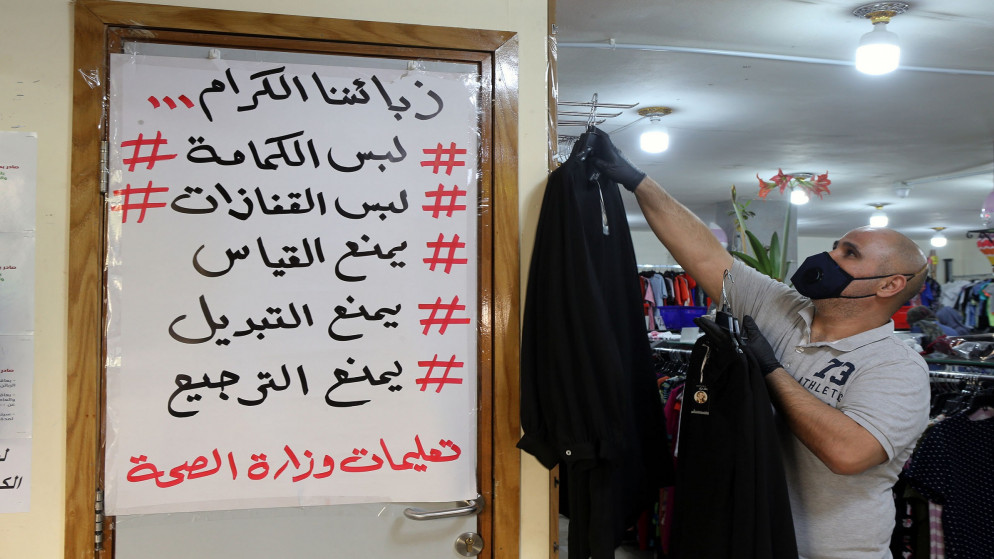 زبائننا الكرام...
# لبس الكمامة #
# لبس القفازات #
# يمنع القياس
# يمنع التبديل
# يمنع الترجيع
تعليمات وزارة الصحة
73
ATHLETIC